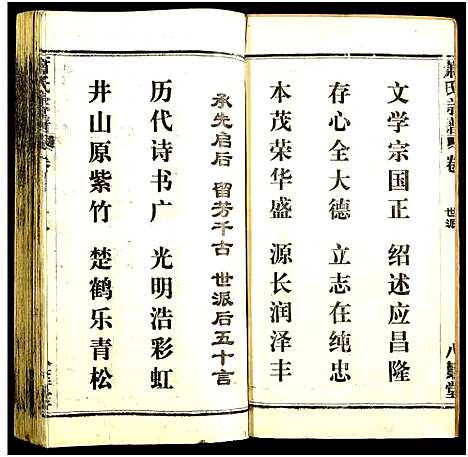 萧氏宗谱 卷 世派
文学宗国正 绍述应昌隆
存心全大德 立志在纯忠
本茂荣华盛 源长润泽丰
承先启后 留芳千古 世派后五十言
历代诗书广 光明浩彩虹
井山原紫竹 楚鹤乐青松